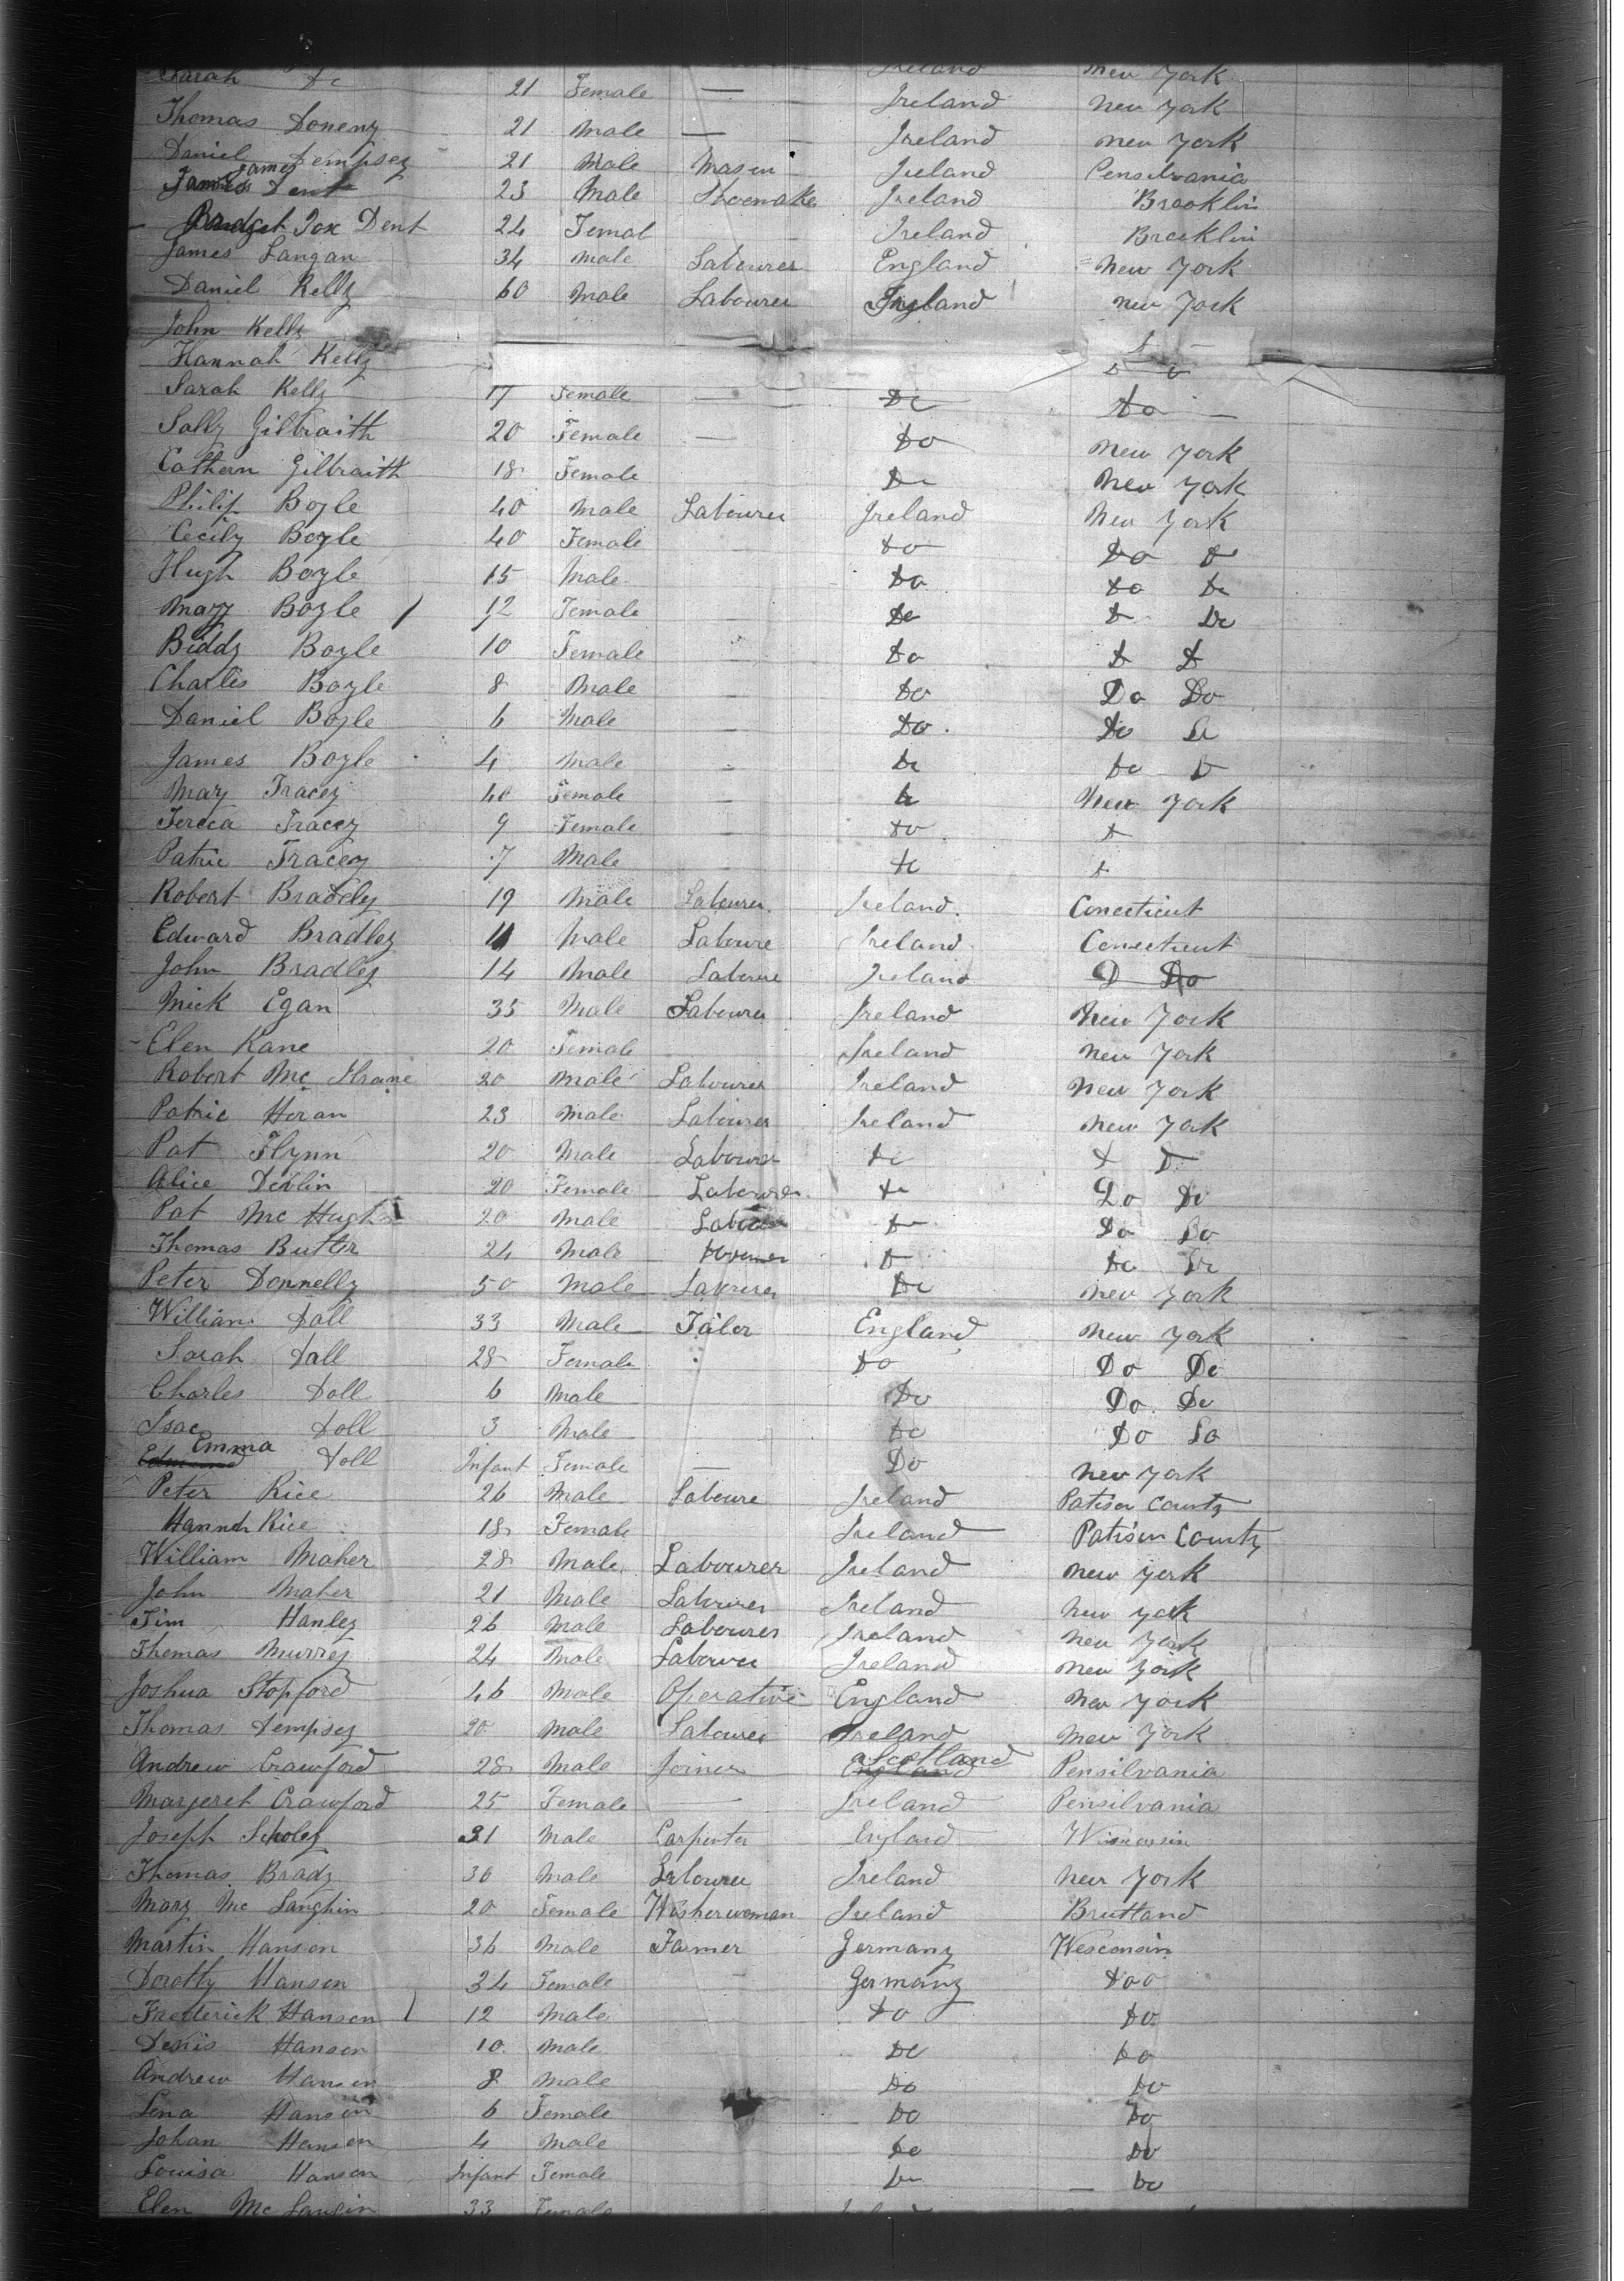 Sarah Do 21 Female — Ireland New York
Thomas Doneny 21 Male — Ireland New York
Daniel Dempsey 21 Male Mason Ireland Pensilvania
James Dent 23 Male Shoemaker Ireland Brooklin
Bridget Fox Dent 24 Femal Ireland Brooklin
James Langan 34 Male Labourer England New York
Daniel Kelly 60 Male Labourer New York
John Kelly
Hannah Kelly
Sarah Kelly 17 Female — Do Do
Sally Gilbraith 20 Female — Do New York
Cathern Gilbraith 18 Female Do New York
Philip Boyle 40 Male Labourer Ireland New York
Cecily Boyle 40 Female — Do Do Do
Hugh Boyle 15 Male — Do Do Do
Mary Boyle 12 Female — Do Do Do
Biddy Boyle 10 Female — Do Do Do
Charles Boyle 8 Male — Do Do Do
Daniel Boyle 6 Male — Do Do Do
James Boyle 4 Male — Do Do Do
Mary Tracey 40 Female — Do New York
Tereca Tracey 9 Female — Do Do
Patric Tracey 7 Male Do Do
Robert Bradely 19 Male Labourer Ireland Conecticut
Edward Bradley 11 Male Laboure Ireland Conecticut
John Bradley 14 Male Laboure Ireland D Do
Mick Egan 35 Male Labourer Ireland New York
Elen Kane 20 Female Ireland New York
Robert Mc Shane 20 Male Labourer Ireland New York
Patric Horan 23 Male Labourer Ireland New York
Pat Flynn 20 Male Labourer Do Do Do
Alice Devlin 20 Female Labourer Do Do Do
Pat Mc Hugh 20 Male Labour Do Do Do
Thomas Butler 24 Male Do Do Do
Peter Donnelly 50 Male Labourer Do New York
William Doll 33 Male Tailor England New York
Sarah Doll 28 Female Do Do Do
Charles Doll 6 Male Do Do Do
Isac Doll 3 Male Do Do Do
Emma Doll Infant Female — Do New York
Peter Rice 26 Male Laboure Ireland Patison County
Hannah Rice 18 Female Ireland Patison County
William Maher 28 Male Labourer Ireland New York
John Maher 21 Male Labourer Ireland New York
Tim Hanley 26 Male Labourer Ireland New York
Thomas Murrey 24 Male Labourer Ireland New York
Joshua Stopford 46 Male Operative England New York
Thomas Dempsey 20 Male Labourer Ireland New York
Andrew Crawford 28 Male Joiner Scotland Pensilvania
Margeret Crawford 25 Female — Ireland Pensilvania
Joseph Scholey 31 Male Carpenter England Wisconsin
Thomas Brady 30 Male Labourer Ireland New York
Mary Mc Langhin 20 Female Washerwoman Ireland Bruttland
Martin Hanson 36 Male Farmer Germany Wesconsin
Dorothy Hanson 34 Female — Germany Doo
Frederick Hanson 12 Male Do Do
Denis Hanson 10 Male Do Do
Andrew Hansen 8 Male Do Do
Lena Hansen 6 Female Do Do
Johan Hansen 4 Male Do Do
Louisa Hansen Infant Female Do Do
Elen Mc Laugin 33 Female